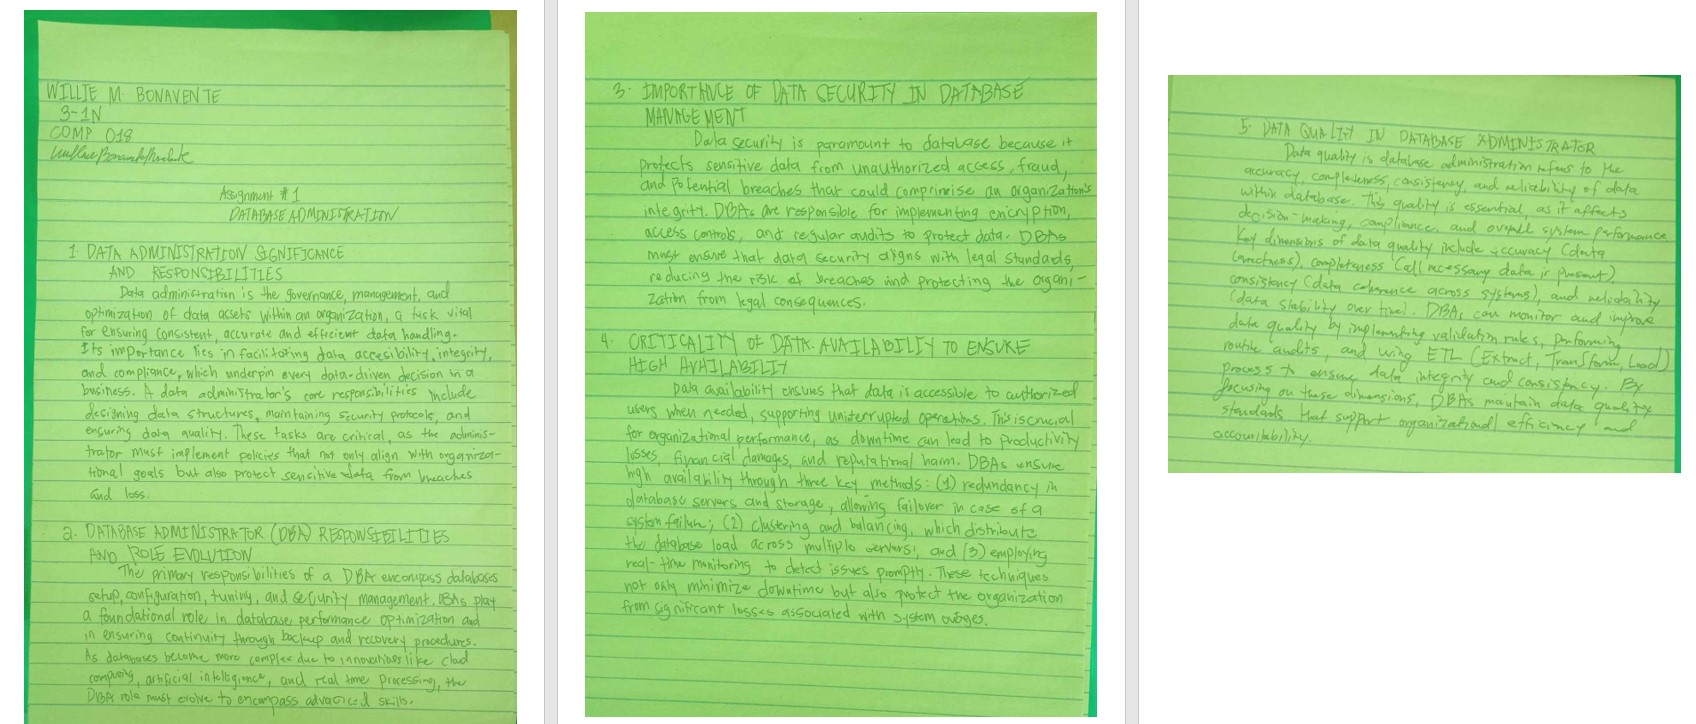 WILLIE M. BONAVENTE
3-1N
COMP 018
Assignment #1
DATABASE ADMINISTRATION
1. DATA ADMINISTRATION SIGNIFICANCE
AND RESPONSIBILITIES
Data administration is the governance, management, and
optimization of data assets within an organization, a task vital
for ensuring consistent, accurate and efficient data handling.
Its importance lies in facilitating data accesibility, integrity,
and compliance, which underpin every data-driven decision in a
business. A data administrator's core responsibilities include
designing data structures, maintaining security protocols, and
ensuring data quality. These tasks are critical, as the adminis-
trator must implement policies that not only align with organiza-
tional goals but also protect sensitive data from breaches
and loss.
2. DATABASE ADMINISTRATOR (DBA) RESPONSIBILITIES
AND ROLE EVOLUTION
The primary responsibilities of a DBA encompass databases
setup, configuration, tuning, and security management. DBAs play
a foundational role in database performance optimization and
in ensuring continuity through backup and recovery procedures.
As databases become more complex due to innovations like clod
computing, artificial intelligence, and real time processing, the
DBA role must evolve to encompass advanced skills.
3. IMPORTANCE OF DATA SECURITY IN DATABASE
MANAGEMENT
Data security is paramount to database because it
protects sensitive data from unauthorized access, fraud,
and potential breaches that could comprimise an organization's
integrity. DBAs are responsible for implementing encryption,
access controls, and regular audits to protect data. DBAs
must ensure that data security aligns with legal standards,
reducing the risk of breaches and protecting the organi-
zation from legal consequences.
4. CRITICALITY OF DATA AVAILABILITY TO ENSURE
HIGH AVAILABILITY
Data availability ensures that data is accessible to authorized
users when needed, supporting uniterrupted operations. This is crucial
for organizational performance, as downtime can lead to productivity
losses, financial damages, and reputational harm. DBAs ensure
high availability through three key methods: (1) redundancy in
database servers and storage, allowing failover in case of a
system failure; (2) clustering and balancing, which distribute
the database load across multiple servers; and (3) employing
real-time monitoring to detect issues promptly. These techniques
not only minimize downtime but also protect the organization
from significant losses associated with system outages.
5. DATA QUALITY IN DATABASE ADMINISTRATOR
Data quality is database administration refers to the
accuracy, completeness, consistency, and reliability of data
within database. This quality is essential, as it affects
decision-making, compliance, and overall system performance
Key dimensions of data quality include accuracy (data
correctness), completeness (all necessary data is present),
consistency (data coherence across systems), and reliability
(data stability over time). DBAs can monitor and improve
data quality by implementing validation rules, performing
routine audits, and using ETL (Extract, Transform, Load)
process to ensure data integrity and consistency. By
focusing on these dimensions, DBAs maintain data quality
standards that support organizational efficiency and
accountability.